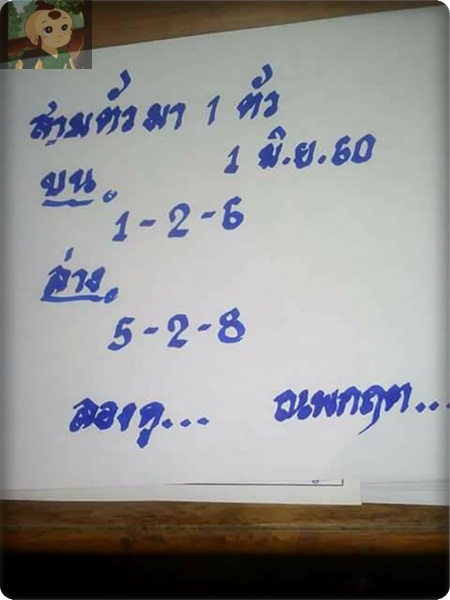 สามตัวมา 1 ตัว
1 มิ.ย.60
บน
1-2-6
ล่าง
5-2-8
ลองดู... ณพกฤต...